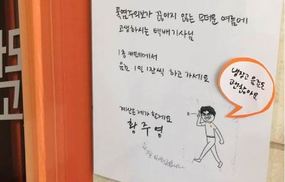 폭염주의보가 끊이지 않는 무더운 여름에
고생하시는 택배기사님
1층 카페에서
음료 1인 1잔씩 하고 가세요
계산은 제가 할게요
황주영
냉장고 음료도
괜찮아요
고